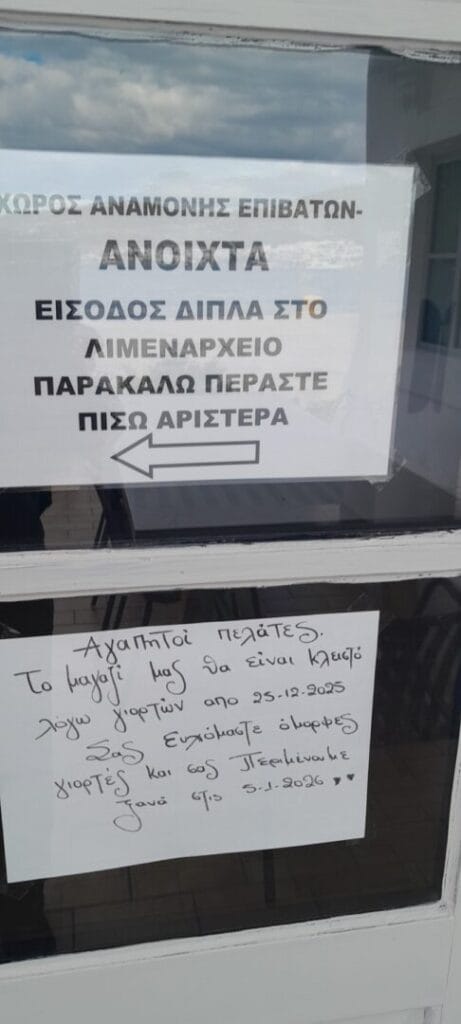 ΧΩΡΟΣ ΑΝΑΜΟΝΗΣ ΕΠΙΒΑΤΩΝ-
ΑΝΟΙΧΤΑ
ΕΙΣΟΔΟΣ ΔΙΠΛΑ ΣΤΟ
ΛΙΜΕΝΑΡΧΕΙΟ
ΠΑΡΑΚΑΛΩ ΠΕΡΑΣΤΕ
ΠΙΣΩ ΑΡΙΣΤΕΡΑ
Αγαπητοί πελάτες.
Το μαγαζί μας θα είναι κλειστό
λόγω γιορτών απο 25-12-2025
Σας Ευχόμαστε όμορφες
γιορτές και σας Περιμένουμε
ξανά στις 5-1-2026